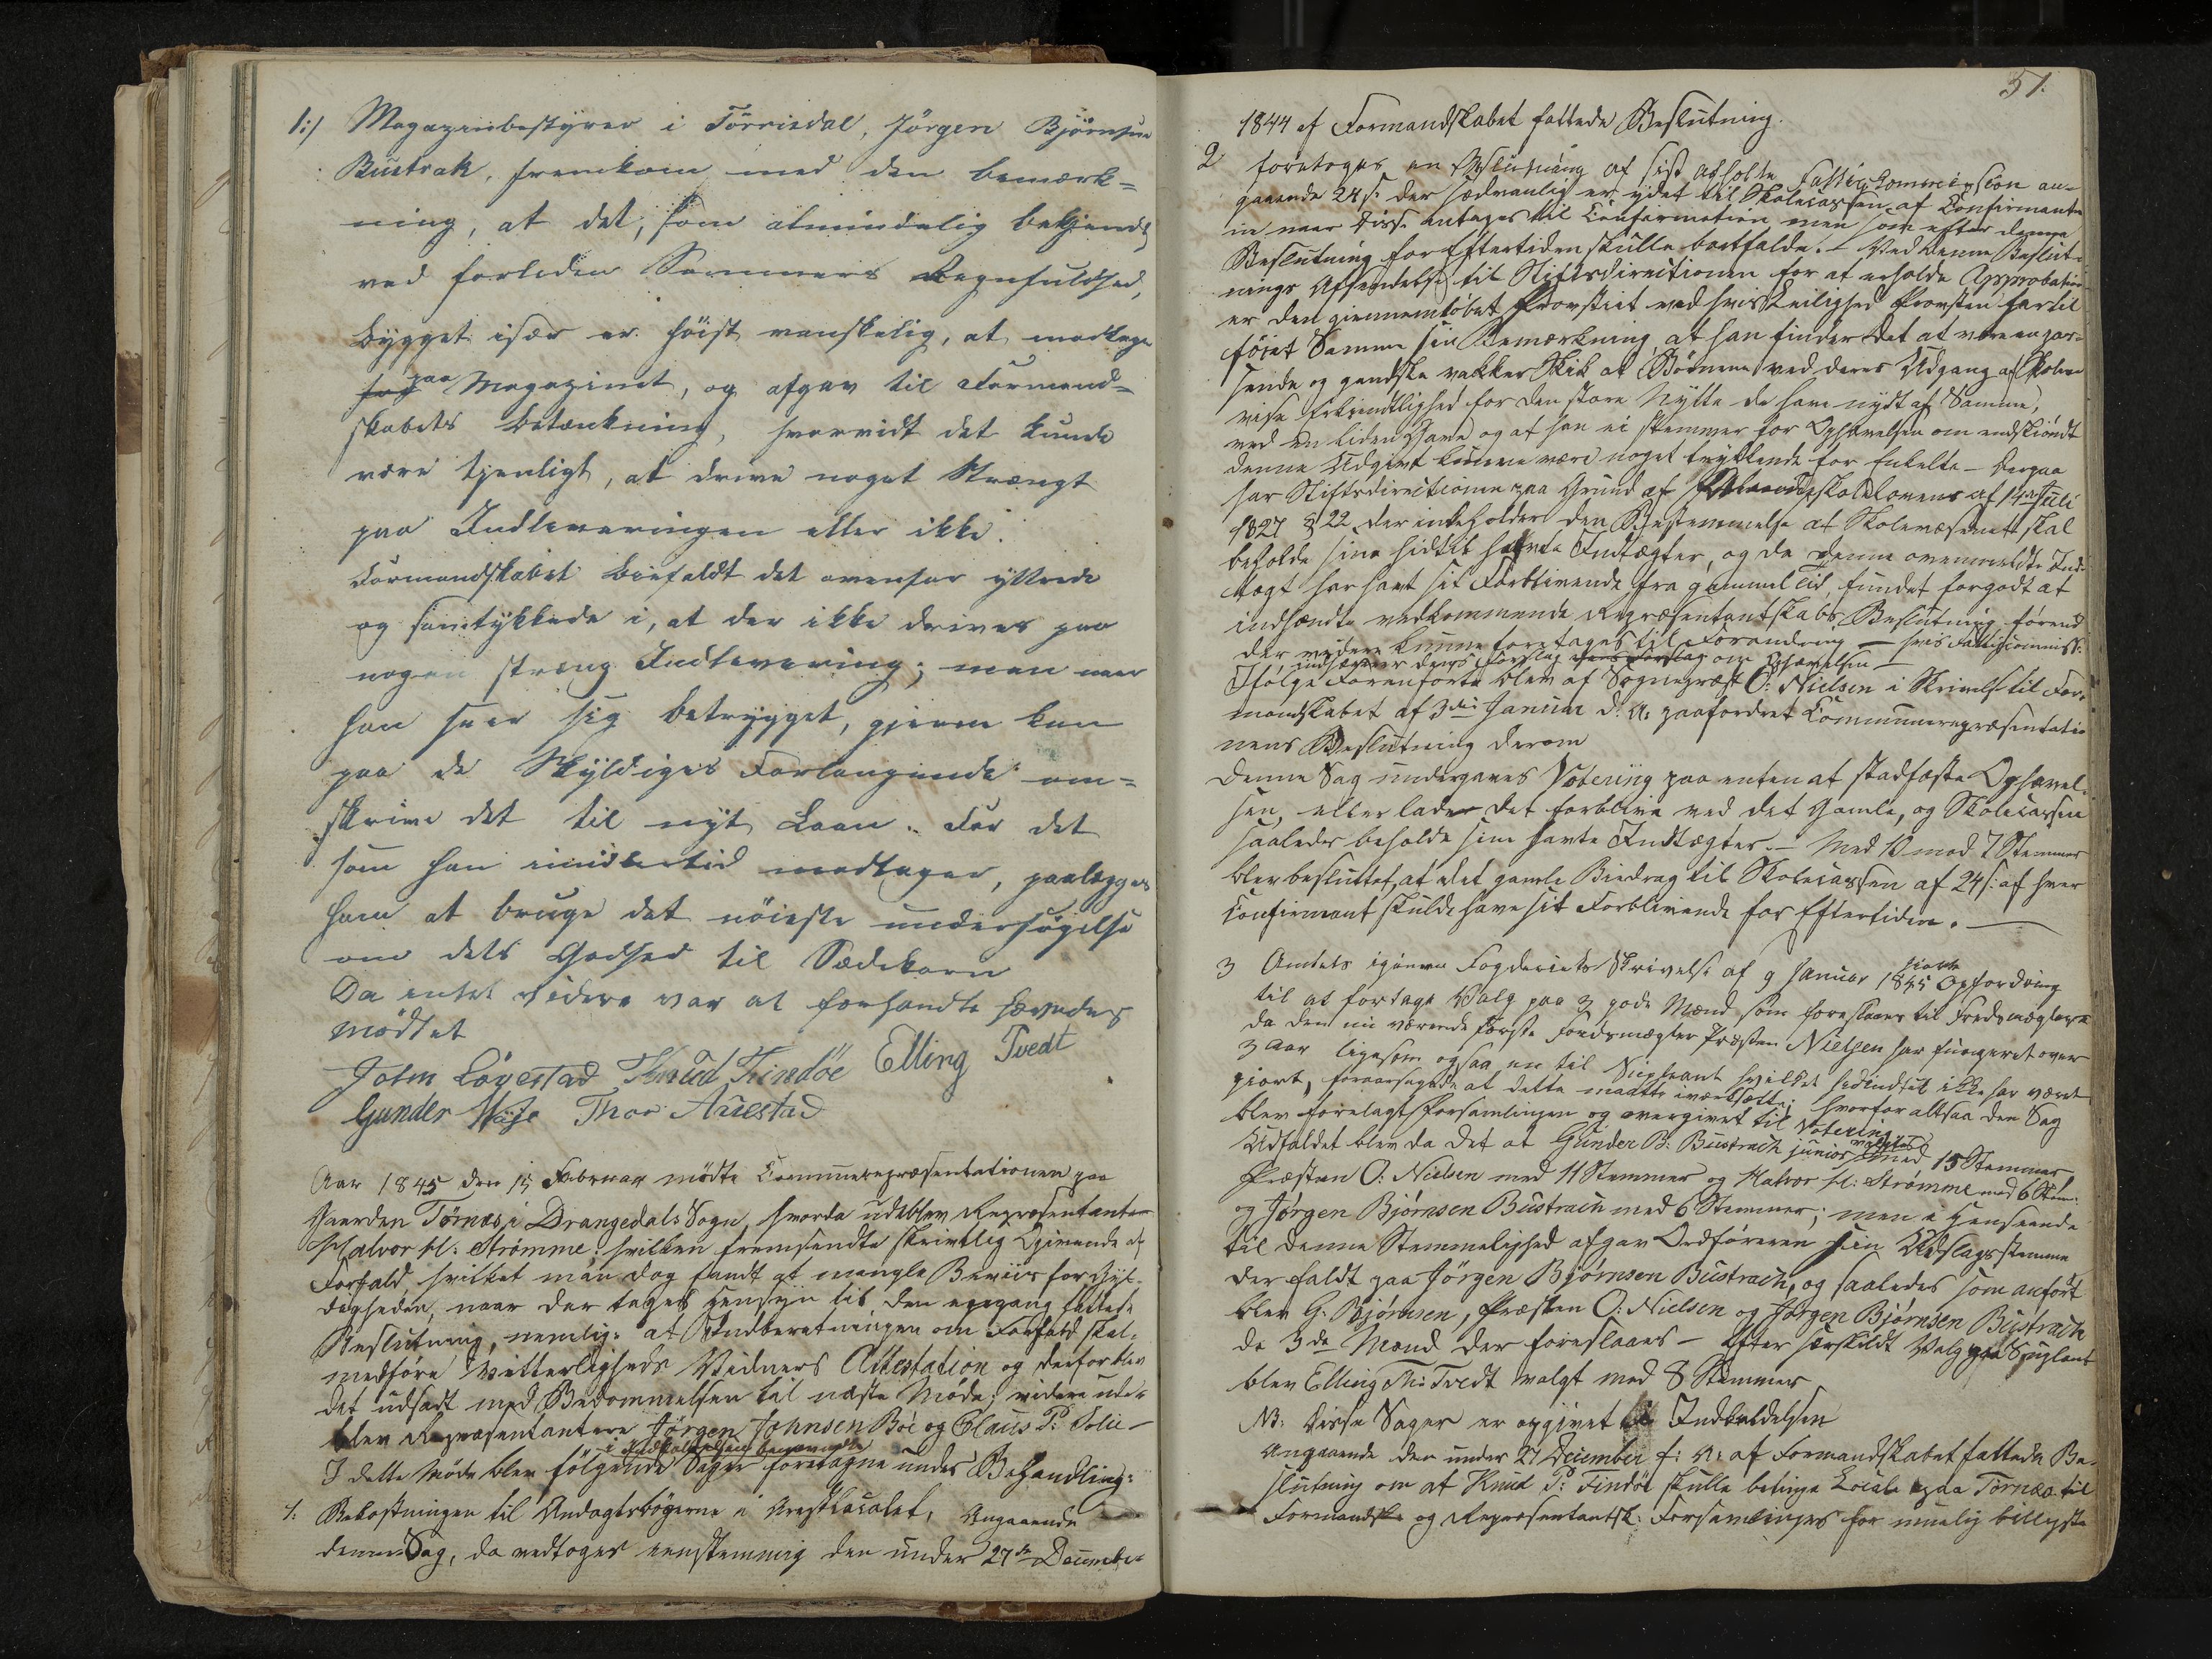 1:/ Magazinbestyrer i Törrisdal, Jörgen Björnsen
Bustrak, fremkom med den bemærk=
ning, at det, som almindelig bekjendt,
ved forleden Sommers Regnfuldhed,
bygget især er höist vanskelig, at modtage
paa Magazinet, og afgav til Formand=
skabets betænkning, hvorvidt det kunde
være tjenligt, at drive noget strængt
paa Indleveringen eller ikke.
Formandskabet biefaldt det ovenfor yttrede
og samtykkede i, at der ikke drives paa
nogen stræng Indlevering; men naar
han seer sig betrygget, gjerne kan
paa de Skyldiges Forlangende om=
skrive det til nyt Laan. For det
som han imidlertid modtager, paalægges
ham at bruge det nöieste undersögelse
om dets Godhed til Sædekorn
Da intet videre var at forhandle hævedes
mödtet
John Lögestad Knud Tindöe Elling Tvedt
Gunder Thor Auestad
Aar 1845 den 15 Februar mödte Communerepræsentationen paa
Gaarden Törnes i Drangedals Sogn, hvorda udeblev Repræsentanten
Halvor H: Strömme: hvilken fremsendte skrivtlig Givende af
Forfald hvilket man dog fandt at mangle Beviis for Gyl-
digheden, naar der tages Hensyn til den engang fattede
Beslutning, nemlig: at Indberetningen om Forfald skal
medföre Vitterligheds Vidners Attestation og derfor blev
det udsadt med Bedömmelsen til næste Möde; videre ude-
blev Repræsentantere Jörgen Johnsen Böe og Claus P: Tolie -
i Indkaldelsen benævnte
I dette Möde blev fölgende Sager foretagne under Behandling:
1: Bekostningen til Andagtsbögerne i Arrestlocalet, Angaaende
denne Sag, da vedtoges eenstemmig den under 27de December
51.
1844 af Formandskabet fattede Beslutning.
2 foretoges en Beslutning af sist afholte Fattig Commission an-
gaaende 24 s: der sædvanlig er ydet til Skolecassen af Confirmante
ne naar disse antages til Confirmation men som efter denne
Beslutning for Eftertiden skulle bortfalde. - Ved denne Beslut-
nings Afsendelse til Stiftsdirectionen for at erholde Approbation
er den giennemlöbet Provstiet ved hvis Leilighed Provsten har til
föiet Samme sin Bemærkning, at han finder det at være en pas-
sende og gandske vakker Skik at Börnene ved deres Udgang af Skolen
vise Erkiendtlighed for den store Nytte de have nydt af Samme,
ved en liden Gave og at han ei stemmer for Ophævelsen om endskiöndt
denne Udgivt kunne være noget trykkende for Enkelte - derpaa
har Stiftsdirectionen paa Grund af Skolelovens af 14de Juli
1827 § 22 der indeholder den Bestemmelse at Skolevæsenet skal
beholde sine hidtil havte Indtægter, og da denne ovenmeldte Ind-
tægt har havt sit Forblivende fra gammel Tid, fundet forgodt at
indhændte vedkommende Repræsentantskabs Beslutning förend
der videre kunne foretages til Forandring - hvis Fattigcommiss:
indsender deres Forslag om Ophævelsen -
Ifölge Foranforte blev af Sogneprest O: Nielsen i Skrivelse til For-
mandskabet af 3die Januar d: A: paafordret Communerepræsentatio
nens Beslutning derom
Denne Sag undergaves Votering paa enten at stadfæste Ophævel-
sen, eller lade det forblive ved det Gamle, og Skolecassen
saaledes beholde sine havte Indtægter. - Med 10 mod 7 Stemmer
blev besluttet, at det gamle Bidrag til Skolecassen af 24 s: af hver
Confirmant skulde have sit Forblivende for Eftertiden.
3 Amtets igiennem Fogderiets Skrivelse af 9 Januar 1845 Opfordring
til at foretage Valg paa 3 gode Mænd som foreslaaes til Fredsmæglere
da den nu værende förste Fredsmægler Præsten Nielsen har fungeret over
3 Aar ligesom ogsaa en til Suppleant hvilket hidindtil ikke har været
giort, foraarsagede at dette maatte iværksætte: hvorfor altsaa den Sag
blev forelagt Forsamlingen og overgivet til Votering
Udfaldet blev da det at Gunder B: Bustrach junior valgtes med 15 Stemmer
Præsten O: Nielsen med 11 Stemmer og Halvor H: Strömme med 6 Stem:
og Jörgen Björnsen Bustrach med 6 Stemmer; men i Henseende
til denne Stemmelighed afgav Ordföreren sin Udslagsstemme
der faldt paa Jörgen Björnsen Bustrach, og saaledes som anfört
blev G. Björnsen, Præsten O: Nielsen og Jörgen Björnsen Bustrach
de 3de Mænd der foreslaaes - Efter særskildt Valg paa Supleant
blev Elling Th: Tvedt valgt med 8 Stemmer
NB: Disse Sager er opgivet til Indkaldelsen
Angaaende den under 27 December f: A: af Formandskabet fattede Be-
slutning om at Knud P: Tindöe skulle betinge Locale paa Törnes til
Formandsk: og Repræsentantsk: Forsamlinger for muelig billigste